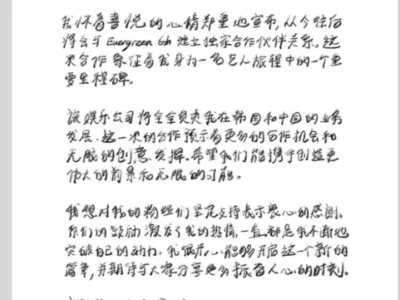 我怀着喜悦的心情郑重地宣布,从今往后
将会与 Evergreen Gdn 建立独家合作伙伴关系。这
次合作象征着我身为一名艺人旅程中的一个重
要里程碑。
该娱乐公司将全全负责我在韩国和中国的业务
发展,这一次的合作预示着更多的合作机会和
无限的创意发挥。希望我们能携手创造更
伟大的前景和无限的可能。
我想对我的粉丝们坚定支持表示衷心的感谢。
你们的鼓励激发了我的热情,一直都是我不断地
突破自己的动力。我很开心能够开启这个新的
篇章,并期待与大家分享更多振奋人心的时刻。